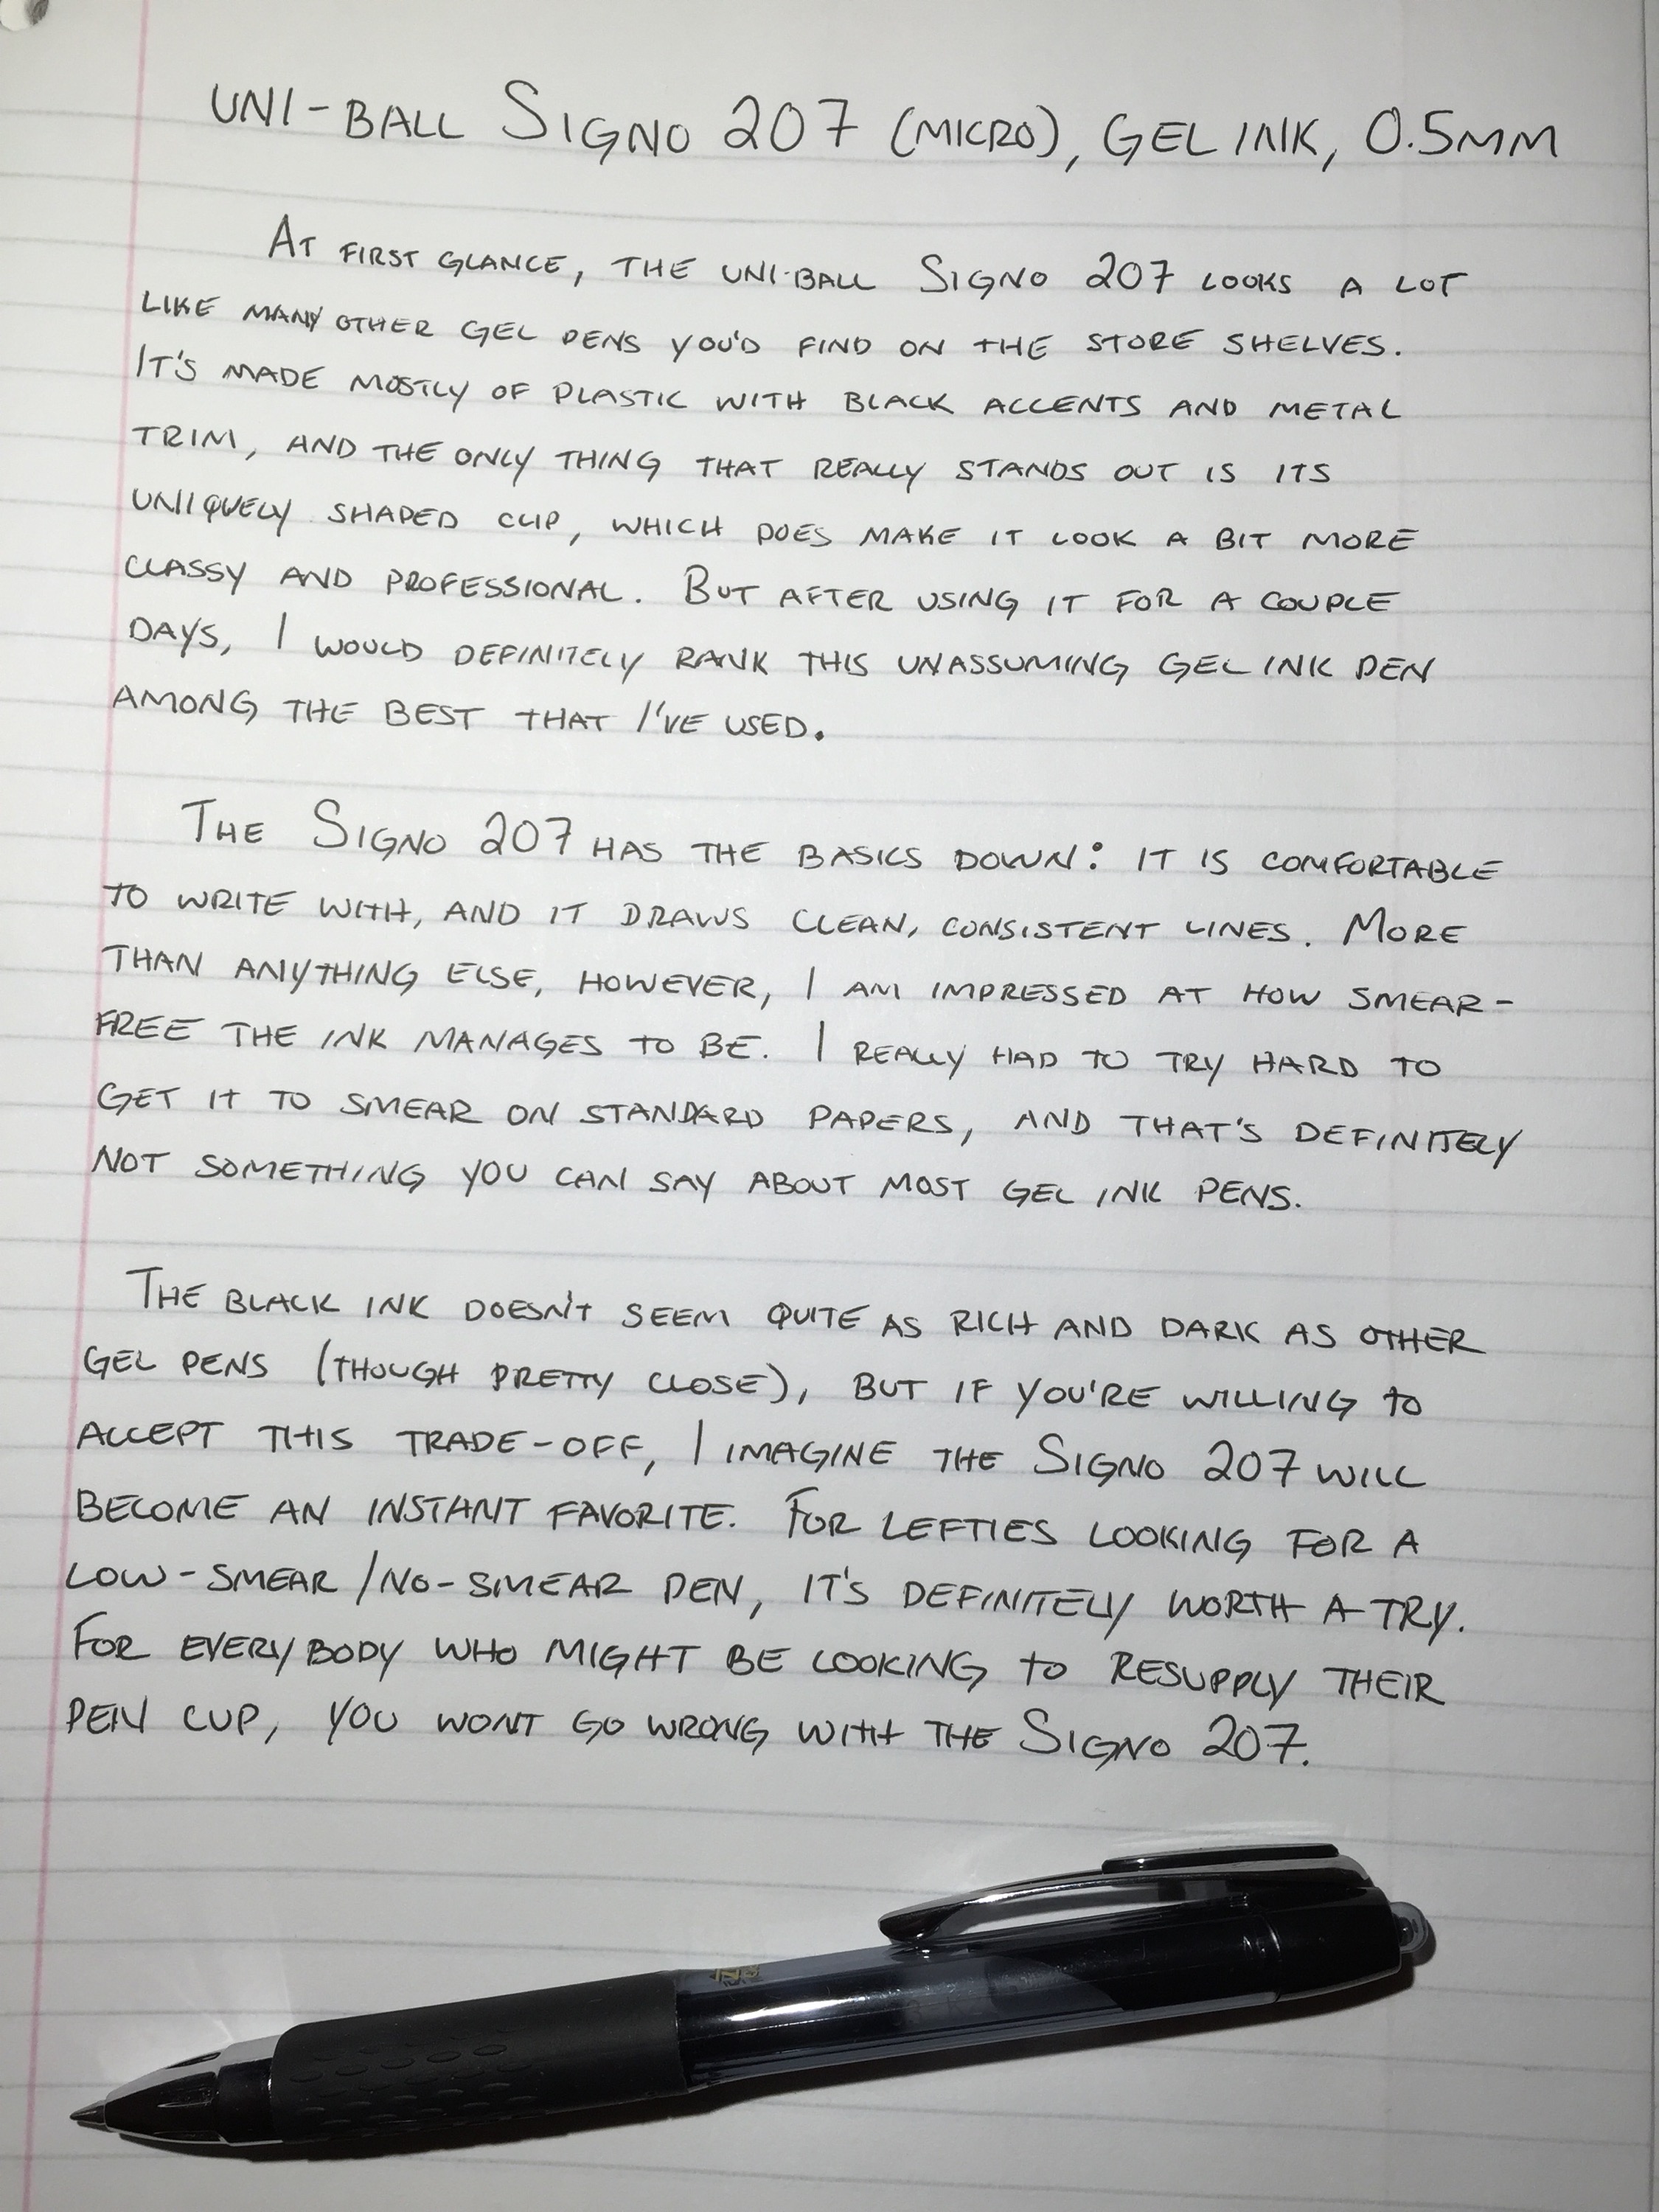 UNI-BALL SIGNO 207 (MICRO), GEL INK, 0.5MM
AT FIRST GLANCE, THE UNI-BALL SIGNO 207 LOOKS A LOT
LIKE MANY OTHER GEL PENS YOU'D FIND ON THE STORE SHELVES.
IT'S MADE MOSTLY OF PLASTIC WITH BLACK ACCENTS AND METAL
TRIM, AND THE ONLY THING THAT REALLY STANDS OUT IS ITS
UNIQUELY SHAPED CLIP, WHICH DOES MAKE IT LOOK A BIT MORE
CLASSY AND PROFESSIONAL. BUT AFTER USING IT FOR A COUPLE
DAYS, I WOULD DEFINITELY RANK THIS UNASSUMING GEL INK PEN
AMONG THE BEST THAT I'VE USED.
THE SIGNO 207 HAS THE BASICS DOWN: IT IS COMFORTABLE
TO WRITE WITH, AND IT DRAWS CLEAN, CONSISTENT LINES. MORE
THAN ANYTHING ELSE, HOWEVER, I AM IMPRESSED AT HOW SMEAR-
FREE THE INK MANAGES TO BE. I REALLY HAD TO TRY HARD TO
GET IT TO SMEAR ON STANDARD PAPERS, AND THAT'S DEFINITELY
NOT SOMETHING YOU CAN SAY ABOUT MOST GEL INK PENS.
THE BLACK INK DOESN'T SEEM QUITE AS RICH AND DARK AS OTHER
GEL PENS (THOUGH PRETTY CLOSE), BUT IF YOU'RE WILLING TO
ACCEPT THIS TRADE-OFF, I IMAGINE THE SIGNO 207 WILL
BECOME AN INSTANT FAVORITE. FOR LEFTIES LOOKING FOR A
LOW-SMEAR/NO-SMEAR PEN, IT'S DEFINITELY WORTH A TRY.
FOR EVERYBODY WHO MIGHT BE LOOKING TO RESUPPLY THEIR
PEN CUP, YOU WONT GO WRONG WITH THE SIGNO 207.